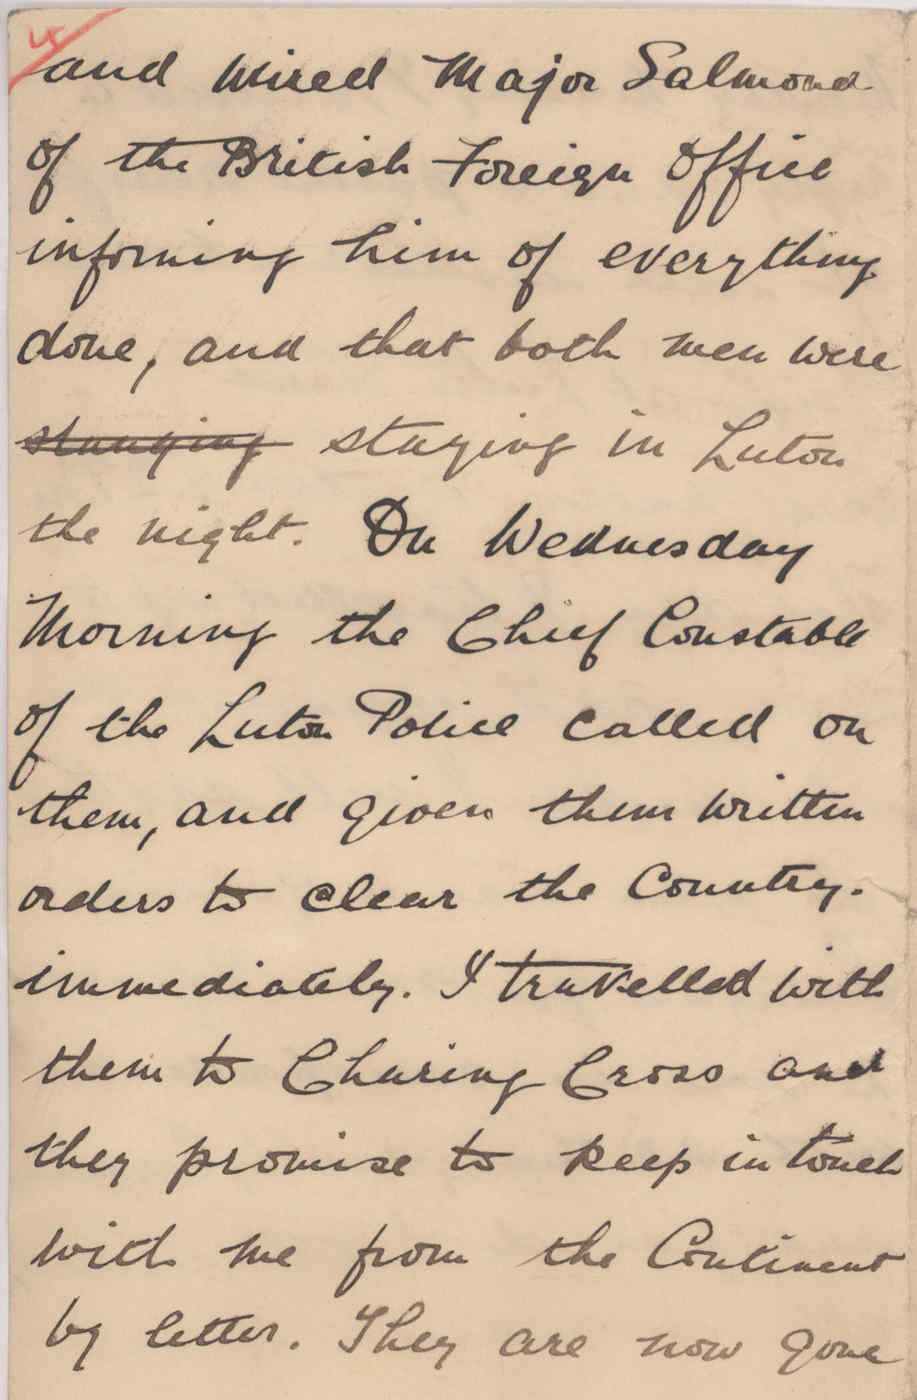 and wired Major Salmond
of the British Foreign Office
informing him of everything
done, and that both men were
staying in Luton
the night. On Wednesday
Morning the Chief Constable
of the Luton Police called on
them, and given them written
orders to clear the Country.
immediately. I travelled with
them to Charing Cross and
they promise to keep in touch
with me from the Continent
by letter. They are now gone